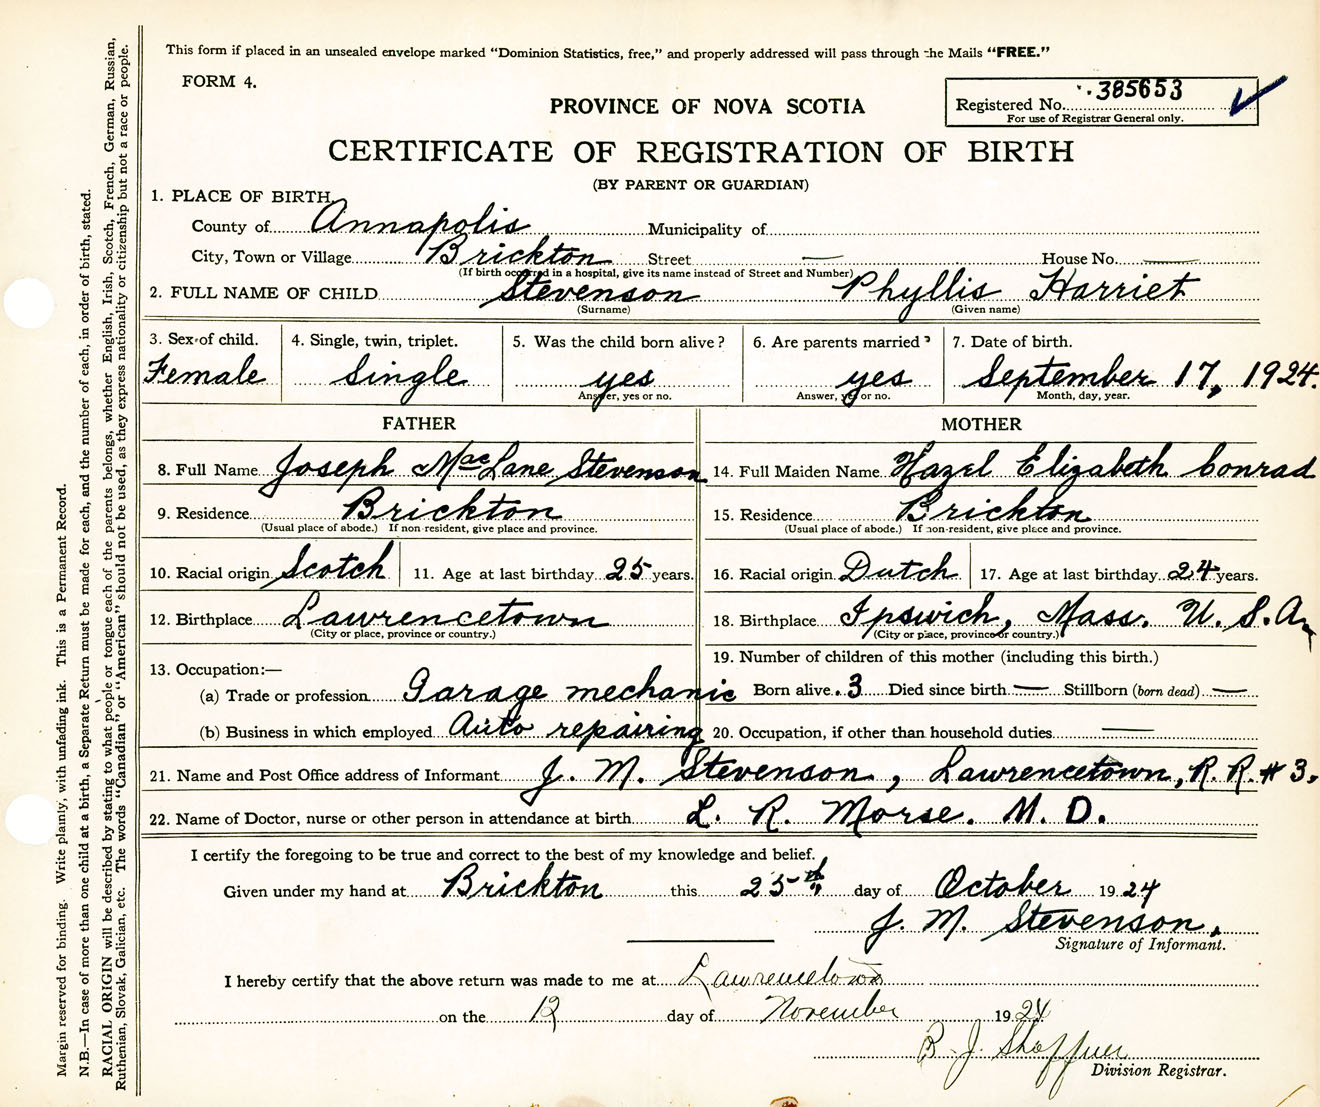 This form if placed in an unsealed envelope marked "Dominion Statistics, free," and properly addressed will pass through the Mails "FREE."
FORM 4.
385653
Registered No.
For use of Registrar General only.
PROVINCE OF NOVA SCOTIA
CERTIFICATE OF REGISTRATION OF BIRTH
(BY PARENT OR GUARDIAN)
1. PLACE OF BIRTH.
County of Annapolis Municipality of
City, Town or Village Brickton Street — House No. —
(If birth occurred in a hospital, give its name instead of Street and Number)
2. FULL NAME OF CHILD Stevenson Phyllis Harriet
(Surname) (Given name)
3. Sex of child. 4. Single, twin, triplet. 5. Was the child born alive? 6. Are parents married? 7. Date of birth.
Female Single yes yes September 17, 1924.
Answer, yes or no. Answer, yes or no. Month, day, year.
FATHER MOTHER
8. Full Name Joseph MacLane Stevenson 14. Full Maiden Name Hazel Elizabeth Conrad
9. Residence Brickton 15. Residence Brickton
(Usual place of abode.) If non-resident, give place and province. (Usual place of abode.) If non-resident, give place and province.
10. Racial origin Scotch 11. Age at last birthday 25 years. 16. Racial origin Dutch 17. Age at last birthday 24 years.
12. Birthplace Lawrencetown 18. Birthplace Ipswich, Mass. U. S. A.
(City or place, province or country.) (City or place, province or country.)
13. Occupation:— 19. Number of children of this mother (including this birth.)
(a) Trade or profession Garage mechanic Born alive 3 Died since birth — Stillborn (born dead) —
(b) Business in which employed Auto repairing 20. Occupation, if other than household duties —
21. Name and Post Office address of Informant J. M. Stevenson, Lawrencetown, R. R. # 3.
22. Name of Doctor, nurse or other person in attendance at birth L. R. Morse. M. D.
I certify the foregoing to be true and correct to the best of my knowledge and belief.
Given under my hand at Brickton this 25th day of October 1924
J. M. Stevenson.
Signature of Informant.
I hereby certify that the above return was made to me at Lawrencetown
on the 12 day of November 1924
B. J. Shaffner
Division Registrar.
Margin reserved for binding. Write plainly, with unfading ink. This is a Permanent Record.
N.B.—In case of more than one child at a birth, a Separate Return must be made for each, and the number of each, in order of birth, stated.
RACIAL ORIGIN will be described by stating to what people or tongue each of the parents belongs, whether English, Irish, Scotch, French, German, Russian,
Ruthenian, Slovak, Galician, etc. The words "Canadian" or "American" should not be used, as they express nationality or citizenship but not a race or people.